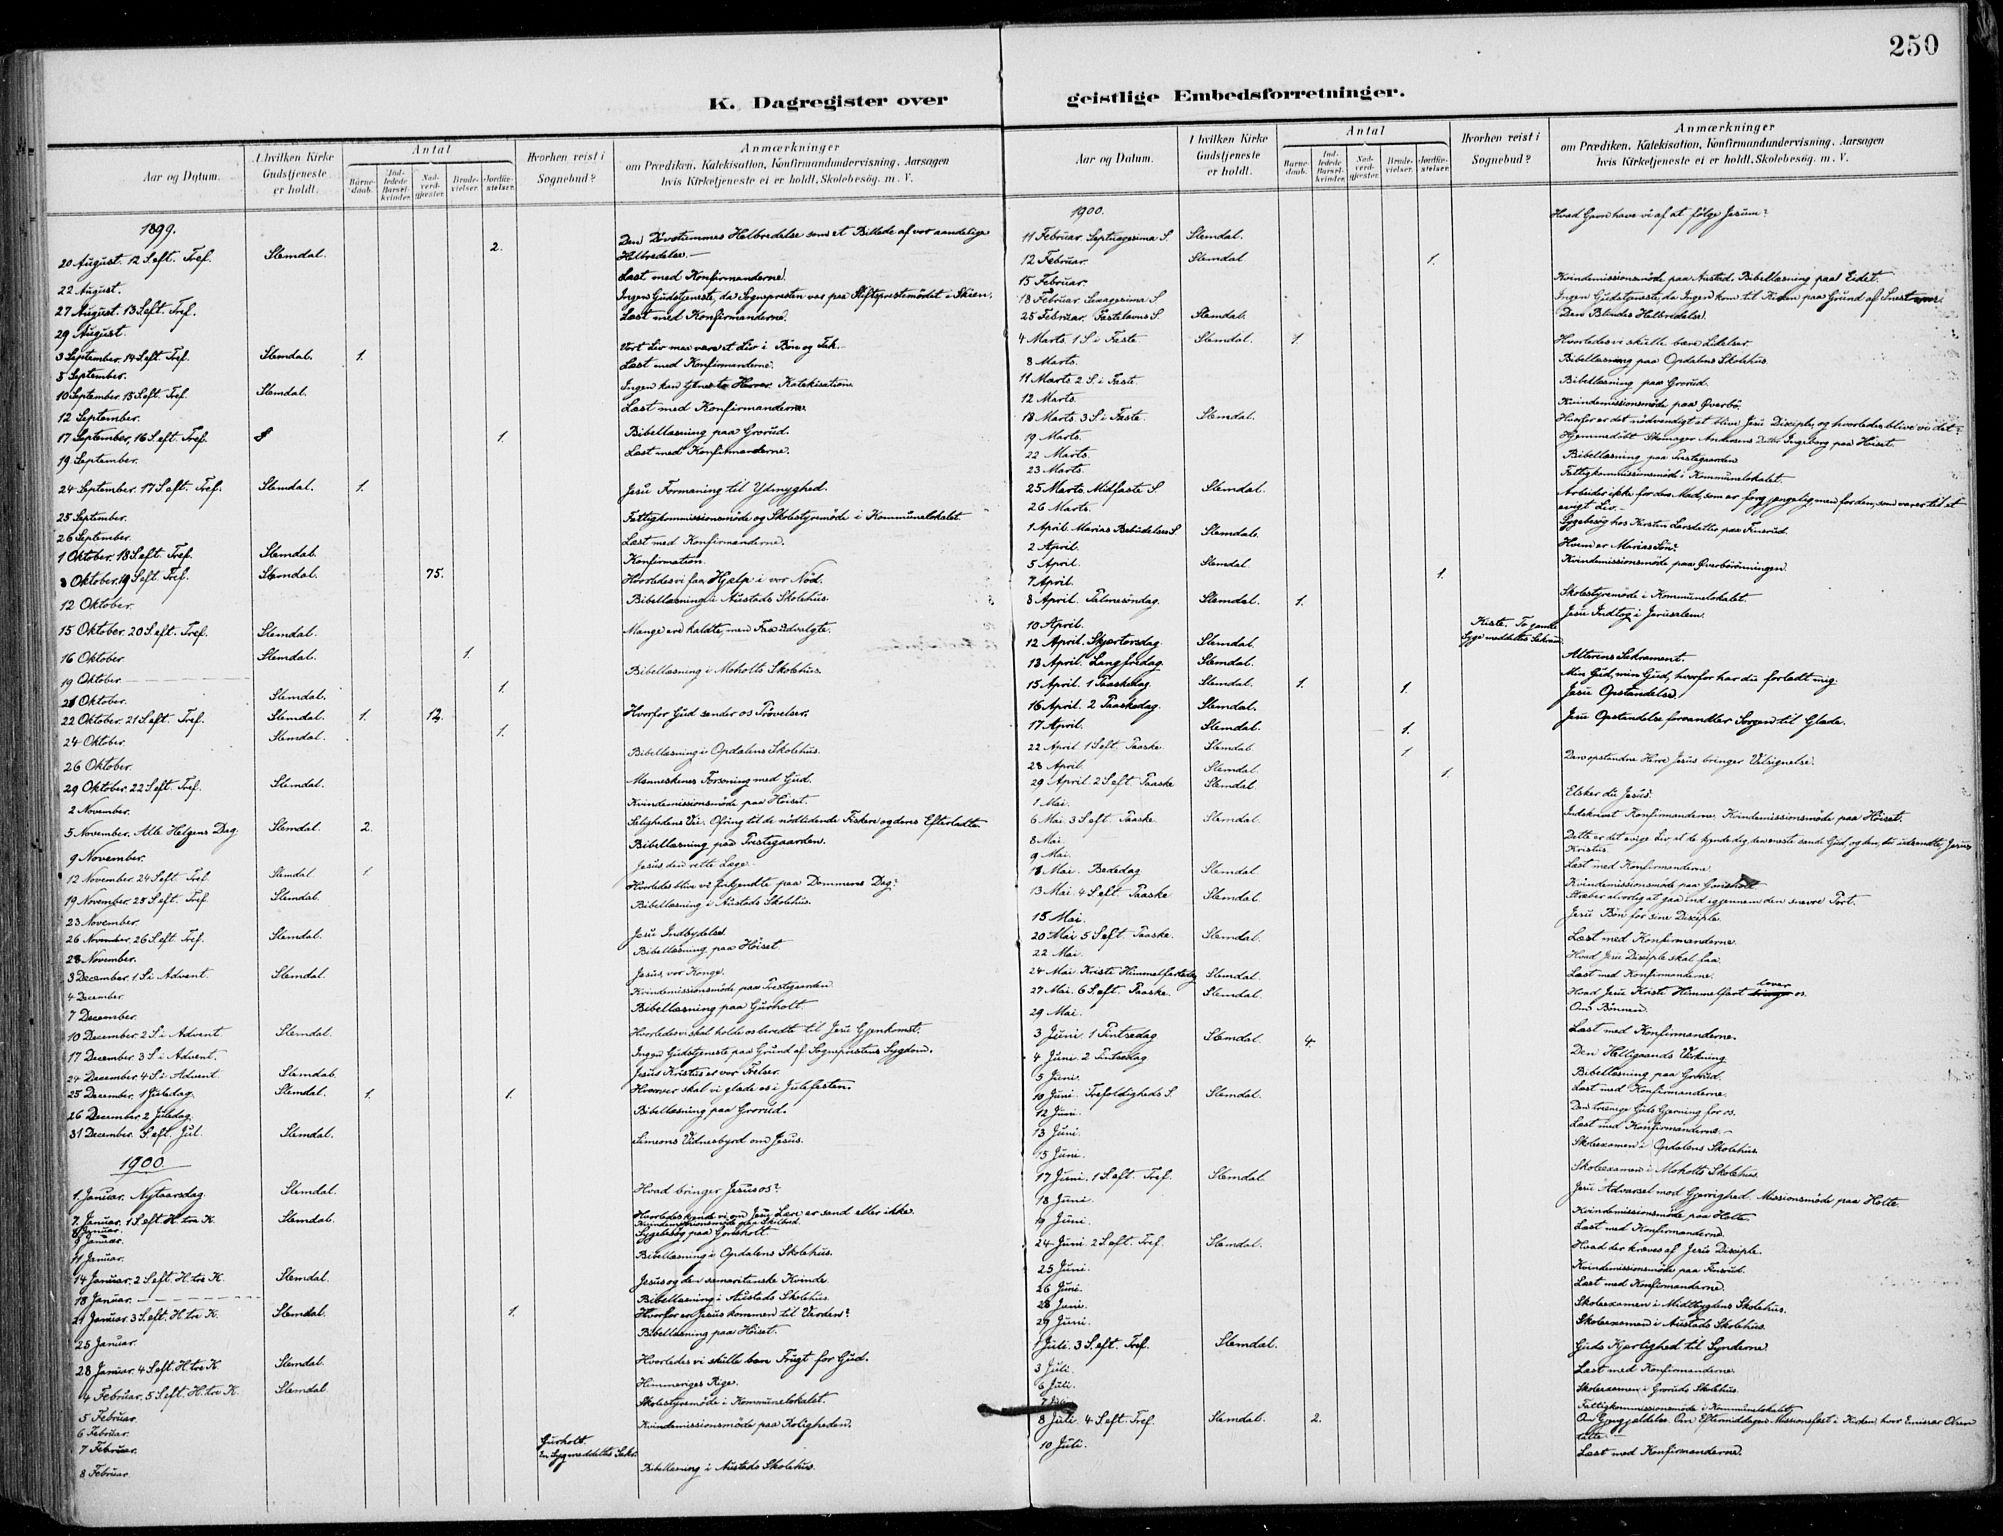 250
K. Dagregister over geistlige Embedsforretninger.
Aar og Datum.
I hvilken Kirke Gudstjeneste er holdt.
Antal
Barnedaab.
Indledede Barselkvinder.
Nadverdgjester.
Brudevielser.
Jordfæstelser.
Hvorhen reist i Sognebud?
Anmærkninger
om Prædiken, Katekisation, Konfirmandundervisning, Aarsagen
hvis Kirketjeneste ei er holdt, Skolebesög. m. V.
1899.
20 August. 12 S. eft. Tref. Slemdal. 2. Den Døvstummes Helbredelse som et Billede af vor aandelige
Helbredelse.
22 August. Læst med Konfirmanderne.
27 August. 13 S. eft. Tref. Ingen Gudstjeneste, da Sognepresten var paa Stiftsprestemødet i Skien.
29 August. Læst med Konfirmanderne.
3 September. 14 S. eft. Tref. Slemdal. 1. Vort Liv maa være et Liv i Bøn og Tak.
5 September. Læst med Konfirmanderne.
10 September. 15 S. eft. Tref. Slemdal. Ingen kan tjene to Herrer. Katekisation.
12 September. Læst med Konfirmanderne.
17 September, 16 S. eft. Tref. 1. Bibellæsning paa Grorud.
19 September. Læst med Konfirmanderne.
24 September. 17 S. eft. Tref. Slemdal. 1. Jesu Formaning til Ydmyghed.
25 September. Fattigkommissionsmøde og Skolestyremøde i Kommunelokalet.
26 September. Læst med Konfirmanderne.
1 Oktober. 18 S. eft. Tref. Slemdal. Konfirmation.
8 Oktober. 19 S. eft. Tref. Slemdal. 75. Hvorledes vi faa Hjælp i vor Nød.
12 Oktober. Bibellæsning i Austads Skolehus.
15 Oktober. 20 S. eft. Tref. Slemdal. Mange ere kaldte, men Faa udvalgte.
16 Oktober. Slemdal. 1.
19 Oktober Bibellæsning i Moholts Skolehus.
21 Oktober. Slemdal. 1.
22 Oktober. 21 S. eft. Tref. Slemdal. 1. 12. Hvorfor Gud sender os Prøvelser.
24 Oktober. Slemdal. 1.
26 Oktober. Bibellæsning i Opdalens Skolehus.
29 Oktober. 22 S. eft. Tref. Slemdal. Menneskenes Forsoning med Gud.
2 November. Kvindemissionsmøde paa Höiset.
5 November. Alle Helgens Dag. Slemdal. 2. Salighedens Vei. Ofring til de nødlidende Fiskere og deres Efterladte.
9 November. Bibellæsning paa Prestegaarden.
12 November. 24 S. eft. Tref. Slemdal. 1. Jesus den rette Læge.
19 November. 25 S. eft. Tref. Slemdal. Hvorledes blive vi frikjendte paa Dommens Dag?
23 November. Bibellæsning i Austads Skolehus.
26 November. 26 S. eft. Tref. Slemdal. Jesu Indbydelse.
28 November. Bibellæsning paa Höiset.
3 December. 1 S. i Advent. Slemdal. Jesus, vor Konge.
4 December. Kvindemissionsmøde paa Prestegaarden.
7 December. Bibellæsning paa Gurholt.
10 December. 2 S. i Advent. Slemdal. Hvorledes vi skal holde os beredte til Jesu Gjenkomst.
17 December. 3 S. i Advent. Ingen Gudstjeneste paa Grund af Sogneprestens Sygdom.
24 December. 4 S. i Advent. Slemdal. Jesus Kristus er vor Frelser.
25 December. 1 Juledag. Slemdal. 1. 1. Hvorover skal vi glæde os i Julefesten.
26 December. 2 Juledag. Bibellæsning paa Grorud.
31 December. S. eft. Jul. Slemdal. Simeons Vidnesbyrd om Jesus.
1900.
1. Januar. Nytaarsdag. Slemdal. Hvad bringer Jesus os?
7. Januar. 1 S. eft. H. tre K. Slemdal. Hvorledes kjende vi om Jesu Lære er sand eller ikke.
8 Januar. Kvindemissionsmøde paa
9 Januar. Sygebesøg paa Gonsholt.
11 Januar. Bibellæsning i Opdalens Skolehus.
14 Januar. 2 S. eft. H. tre K. Slemdal. Jesus og den samaritanske Kvinde.
18 Januar. Bibellæsning i Austads Skolehus.
21 Januar. 3 S. eft. H. tre K. Slemdal. 1. Hvorfor er Jesus kommen til Verden?
25 Januar. Bibellæsning paa Höiset.
28 Januar. 4 S. eft. H. tre K. Slemdal. Hvorledes vi skulle bære Frugt for Gud.
4 Februar. 5 S. eft. H. tre K. Slemdal. Himmeriges Rige.
5 Februar. Skolestyremøde i Kommunelokalet.
6 Februar. Kvindemissionsmøde paa Roligheden.
7 Februar. Gurholt. En Syg meddeltes Sakr.
8 Februar. Bibellæsning i Austads Skolehus.
Aar og Datum.
I hvilken Kirke Gudstjeneste er holdt.
Antal
Barnedaab.
Indledede Barselkvinder.
Nadverdgjester.
Brudevielser.
Jordfæstelser.
Hvorhen reist i Sognebud?
Anmærkninger
om Prædiken, Katekisation, Konfirmandundervisning, Aarsagen
hvis Kirketjeneste ei er holdt, Skolebesög. m. V.
1900.
Hvad Gavn have vi af at følge Jesum?
11 Februar. Septuagesima S. Slemdal.
12 Februar. Slemdal 1.
15 Februar. Kvindemissionsmøde paa Austad. Bibellæsning paa Eidet.
18 Februar. Sexagesima S. Ingen Gudstjeneste, da Ingen kom til Kirken paa Grund af
25 Februar. Fastelavns S. Slemdal. Den Blindes Helbredelse.
4 Marts. 1 S. i Faste Slemdal. 1. Hvorledes vi skulle bære Lidelser.
8 Marts. Bibellæsning paa Opdalens Skolehus.
11 Marts. 2 S. i Faste. Bibellæsning paa Grorud.
12 Marts. Kvindemissionsmøde paa Øverbö.
18 Marts. 3 S. i Faste. Slemdal. Hvorfor er det nødvendigt at blive Jesu Disciple, og hvorledes blive vi det?
19 Marts. Hjemmedøbt Skomager Andersens Datter Ingeborg paa Höiset.
22 Marts. Bibellæsning paa Prestegaarden.
23 Marts. Fattigkommissionsmøde i Kommunelokalet.
25 Marts. Midfaste S. Slemdal. Arbeider ikke for den Mad, som er forgjængelig, men for den, som varer til et
evigt Liv.
26 Marts. Sygebesög hos Kirsten Larsdatter paa Finsrud.
1 April. Marias Bebudelses S. Slemdal. Hvem er Marias Søn?
2 April. Kvindemissionsmøde paa Øverbörönningen.
5 April. Slemdal
7 April. 1. Skolestyremøde i Kommunelokalet.
8 April. Palmesöndag. Slemdal. 1. Jesu Indtog i Jerusalem.
10 April. Kiste. To gamle Syge meddeltes Sakram.
12 April. Skjærtorsdag Slemdal. Alterens Sakrament.
13 April. Langfredag. Slemdal. Min Gud, min Gud, hvorfor har du forladt mig.
15 April. 1 Paaskedag Slemdal. 1. 1. Jesu Opstandelse.
16 April. 2 Paaskedag. Slemdal. Jesu Opstandelse forvandler Sorgen til Glæde.
17 April. Slemdal. 1.
22 April 1 S. eft. Paaske. Slemdal. 1 Den opstandne Herre Jesus bringer Velsignelse.
28 April. Slemdal. 1.
29 April. 2 S. eft. Paaske Slemdal. Elsker du Jesus.
1 Mai. Indskrevet Konfirmanderne. Kvindemissionsmøde paa Höiset.
6 Mai. 3 S. eft. Paaske. Slemdal. Dette er det evige Liv, at de kjende dig den eneste sande Gud, og den, du udsendte, Jesus
Kristus.
8 Mai. Læst med Konfirmanderne.
9 Mai. Kvindemissionsmøde paa Gonsholt
Mai. Bededag Slemdal. Stræber alvorlig at gaa ind igjennem den snevre Port.
13 Mai. 4 S. eft. Paaske Slemdal. Jesu Bön for sine Disciple.
15 Mai. Læst med Konfirmanderne.
20 Mai 5 S. eft. Paaske. Slemdal. Hvad Jesu Disciple skal faa.
22 Mai. Læst med Konfirmanderne.
24 Mai Kristi Himmelfartsdag Slemdal. Hvad Jesu Kristi Himmelfart lover os.
27 Mai. 6 S. eft. Paaske. Slemdal. Om Bönnen.
29 Mai. Læst med Konfirmanderne.
3 Juni. 1 Pintsedag Slemdal. 4. Den Helligaands Virkning
4 Juni. 2 Pintsedag Bibellæsning paa Grorud.
5 Juni. Læst med Konfirmanderne.
10 Juni. Trefoldigheds S. Slemdal. Den treenige Guds Gjerning for os.
12 Juni. Læst med Konfirmanderne.
13 Juni. Skoleexamen i Opdalens Skolehus.
15 Juni. Skoleexamen i Moholts Skolehus.
17 Juni. 1 S. eft. Tref. Slemdal. Jesu Advarsel mod Gjerrighed. Missionsmøde paa Holte.
18 Juni. Kvindemissionsmøde paa Holte.
19 Juni. Læst med Konfirmanderne.
24 Juni. 2 S. eft. Tref. Slemdal. Hvad der kræves af Jesu Disciple.
25 Juni. Kvindemissionsmøde paa Finsrud.
26 Juni. Læst med Konfirmanderne.
28 Juni. Skoleexamen i Midtbygdens Skolehus.
29 Juni. Skoleexamen i Austads Skolehus.
1 Juli. 3 S. eft. Tref. Slemdal. Guds Kjærlighed til Synderne.
3 Juli. Læst med Konfirmanderne.
6 Juli. Skoleexamen i Groruds Skolehus.
7 Juli Fattigkommissionsmøde i Kommunelokalet.
8 Juli. 4. S. eft. Tref. Slemdal. 2. Om Gjengjældelse. Om Eftermiddagen Missionsfest i Kirken, hvor Emissær Olsen
talte.
10 Juli. Læst med Konfirmanderne.